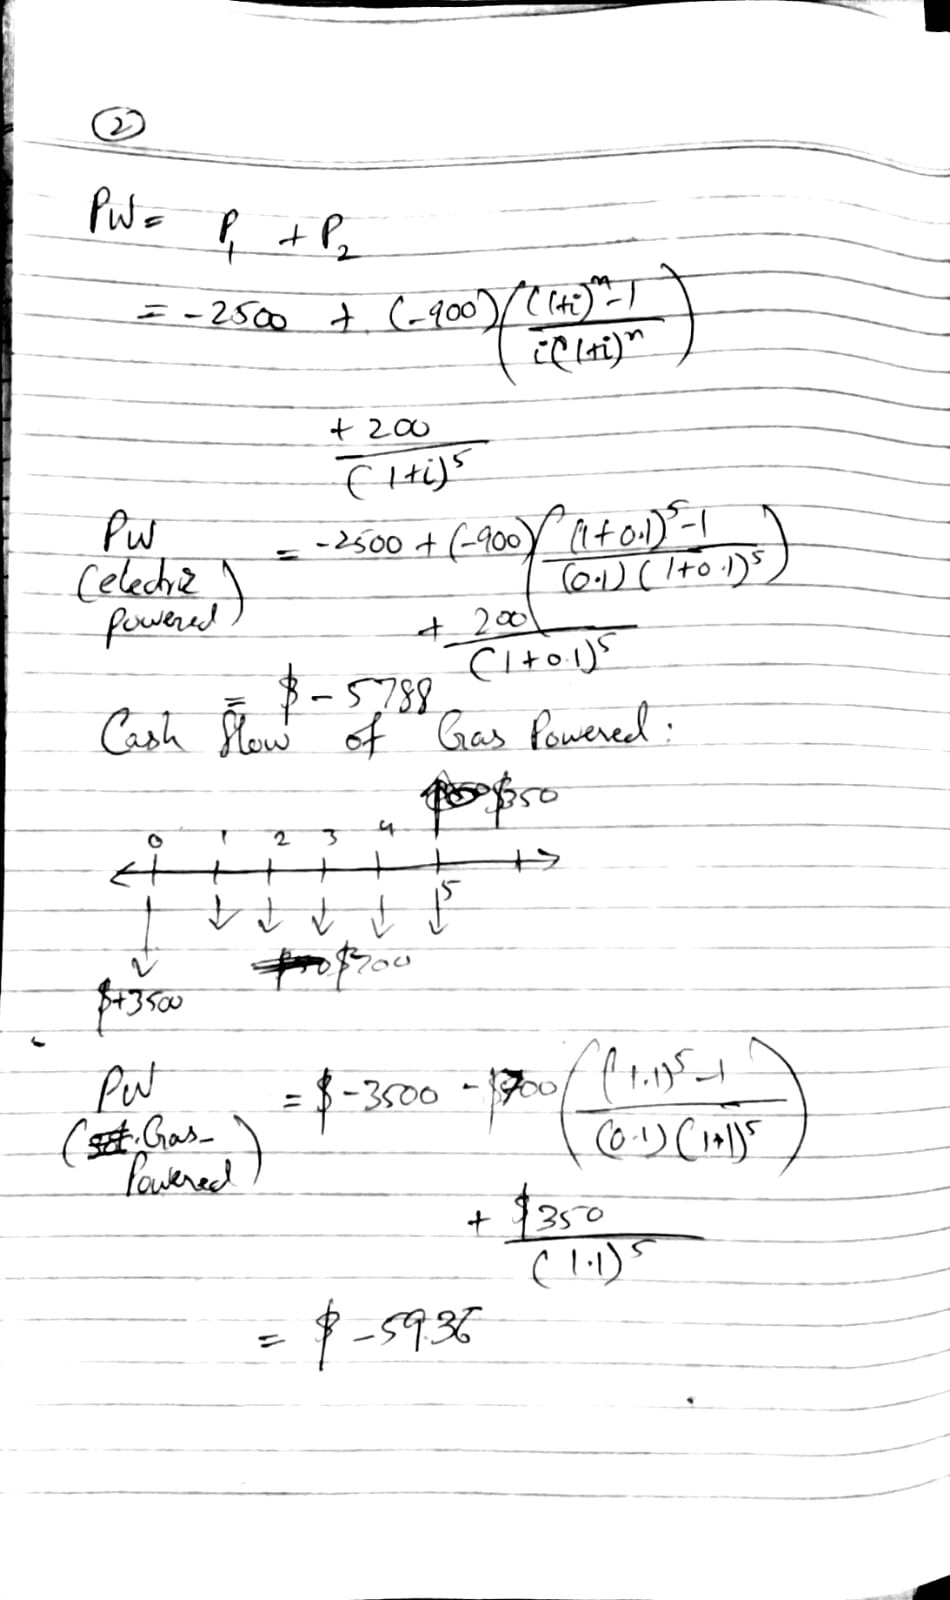 2
PW = P1 + P2
= -2500 + (-900) ( ((1+i)^n - 1) / (i(1+i)^n) )
+ 200 / (1+i)^5
PW (electric powered) = -2500 + (-900) ( ((1+0.1)^5 - 1) / ((0.1)(1+0.1)^5) )
+ 200 / (1+0.1)^5
= $ -5788
Cash flow of Gas Powered :
$350
0 1 2 3 4
5
$700
$+3500
PW (Gas-Powered) = $-3500 - $700 ( ((1.1)^5 - 1) / ((0.1)(1+1)^5) )
+ $350 / (1.1)^5
= $ -5936